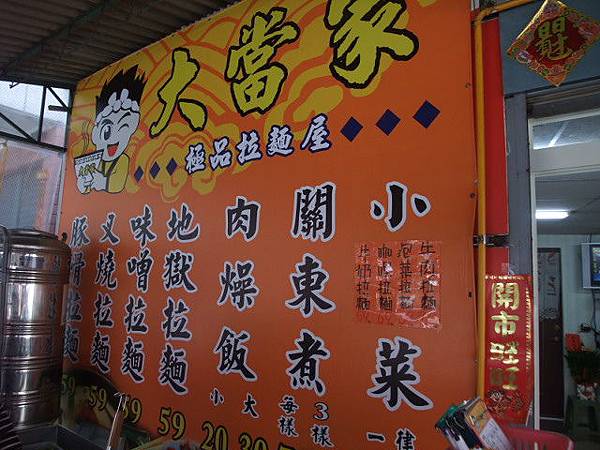 大當家
極品拉麵屋
小菜
一律
關東煮
3樣
每樣
肉燥飯
大
小
30
20
地獄拉麵
59
味噌拉麵
59
叉燒拉麵
59
豚骨拉麵
59
牛肉拉麵
泡菜拉麵
咖哩拉麵
牛奶拉麵
開市旺旺